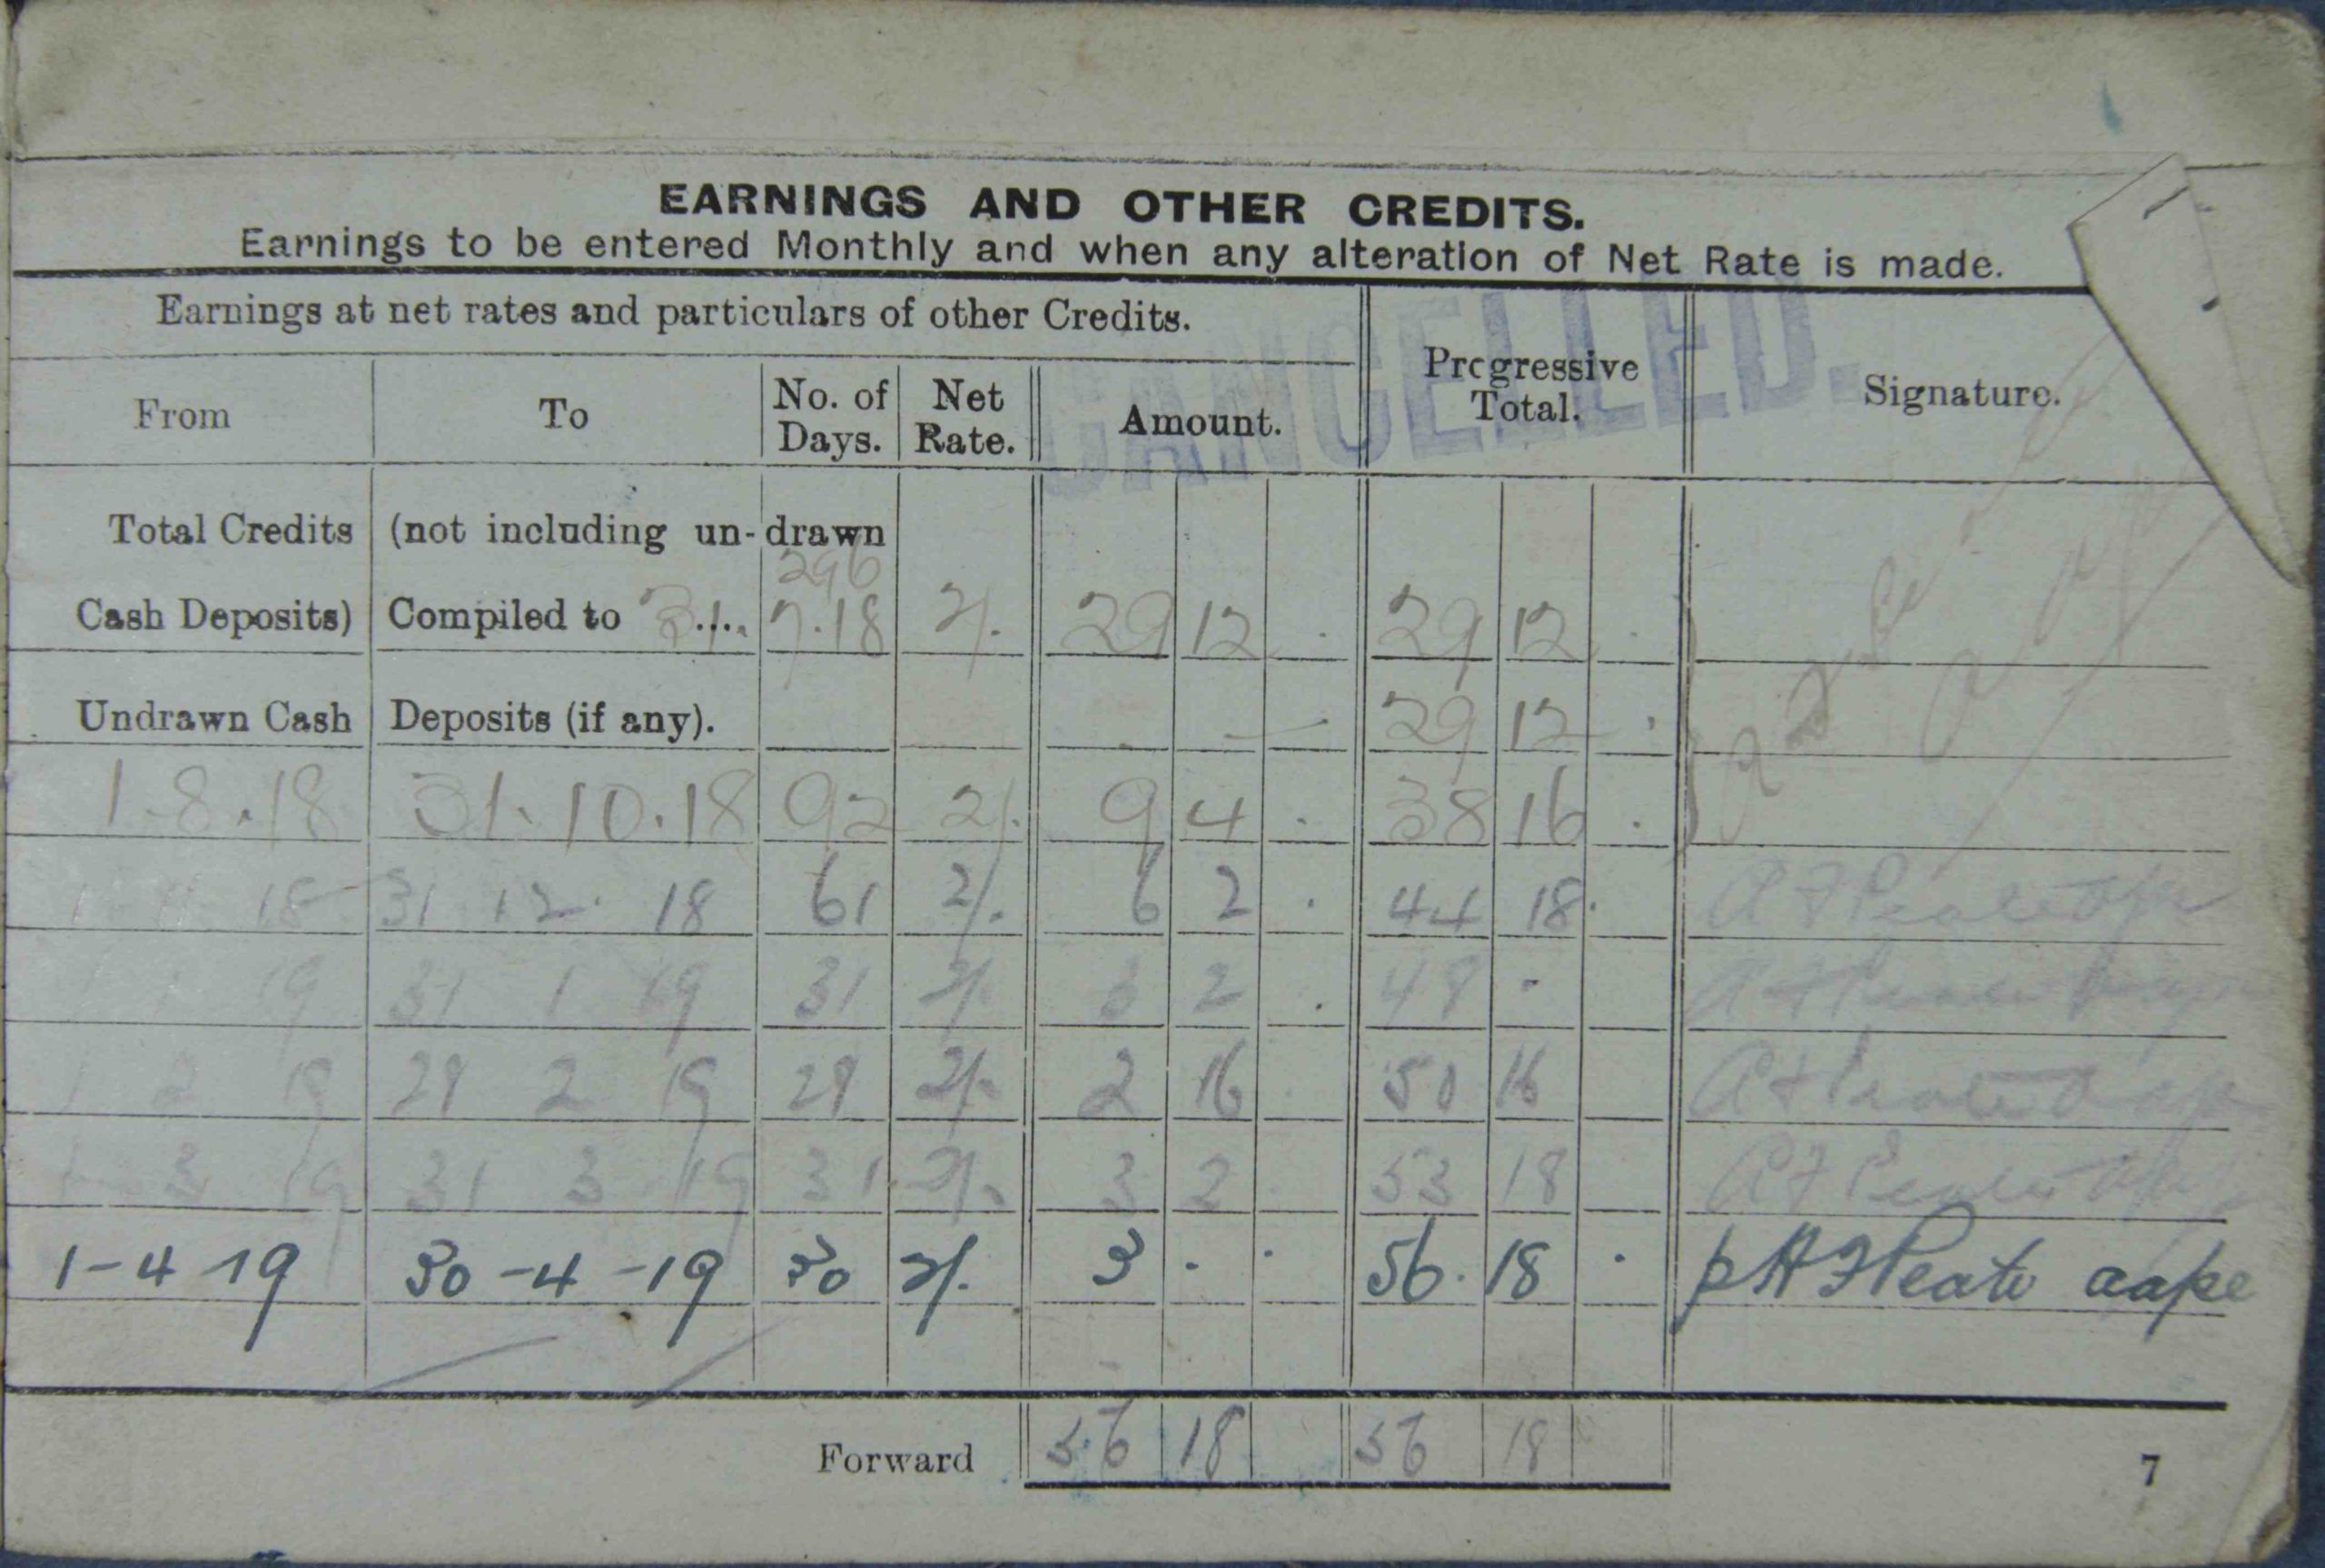 EARNINGS AND OTHER CREDITS.
Earnings to be entered Monthly and when any alteration of Net Rate is made.
Earnings at net rates and particulars of other Credits.
CANCELLED.
From To No. of Days. Net Rate. Amount. Progressive Total. Signature.
Total Credits (not including un-drawn
296
Cash Deposits) Compiled to 31.... 7.18 2/. 29 12 . 29 12 .
Undrawn Cash Deposits (if any). — 29 12 .
1.8.18 31.10.18 92 2/. 9 4 . 38 16 .
1 11 18 31 12 18 61 2/. 6 2 . 44 18.
1 1 19 31 1 19 31 2/. 3 2 . 48 -
1 2 19 28 2 19 28 2/. 2 16 50 16
1 3 19 31 3 19 31 2/. 3 2 53 18
1-4 19 30-4-19 30 2/. 3 . . 56. 18 .
Forward 56 18 56 18
7